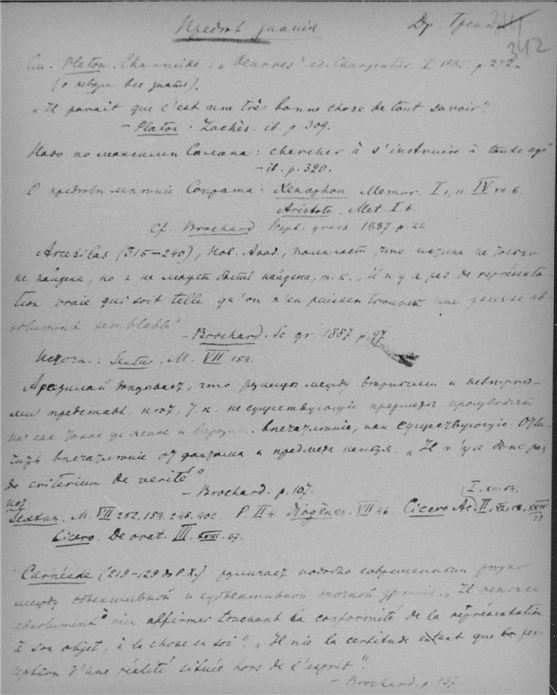 Предѣлъ знанія
Др. Грец
342
См. Platon. Charmide. „Oeuvres" éd. Charpentier I. p. 272
(о невозм. все знать).
„Il paraît que c'est une très bonne chose de tout savoir".
– Platon. Lachès. ib. p. 309.
Надо по максимѣ Солона: chercher à s'instruire à tout âge
– ib. p. 320.
О предѣлахъ знанія Сократа: Xenophon Memor. I, 1, 11. IV 6.
Aristote. Met. I. 6.
Cf. Brochard Scept. grecs 1887 p. 22
Arcésilas (315–240), Нов. Акад., полагаетъ, что истина не только
не найдена, но и не можетъ быть найдена, т. к. „il n'y a pas de représenta
tion vraie qui soit telle qu'on n'en puisse trouver une fausse ab
solument semblable"
– Brochard. Sc. gr. 1887 p. 97
Источн.: Sextus. M. VII 154.
Аркезилай доказываетъ, что разницы между вѣрными и невѣрны-
ми представл. нѣтъ, т. к. не существующіе предметы производятъ
такое же впечатлѣніе, какъ существующіе. Отли-
впечатлѣніе отъ фантома и предмета нельзя. „Il n'y a donc pas
de criterium de verité"
– Brochard. p. 107.
Sextus. M. VII 252, 154. 248. 402. P. II 4. Diogènes. VII 46 Cicero Ac. II.
Cicero. De orat. III. XVIII. 67.
Carnéade (219–129 до Р. Х.) различаетъ подобно современнымъ
между объективной и субъективной точкой зрѣнія. „Il renonce
absolument à rien affirmer touchant la conformité de la représentation
à son objet, à la chose en soi". „Il nie la certitude entant que la per-
ception d'une réalité située hors de l'esprit".
– Brochard. p. 137.